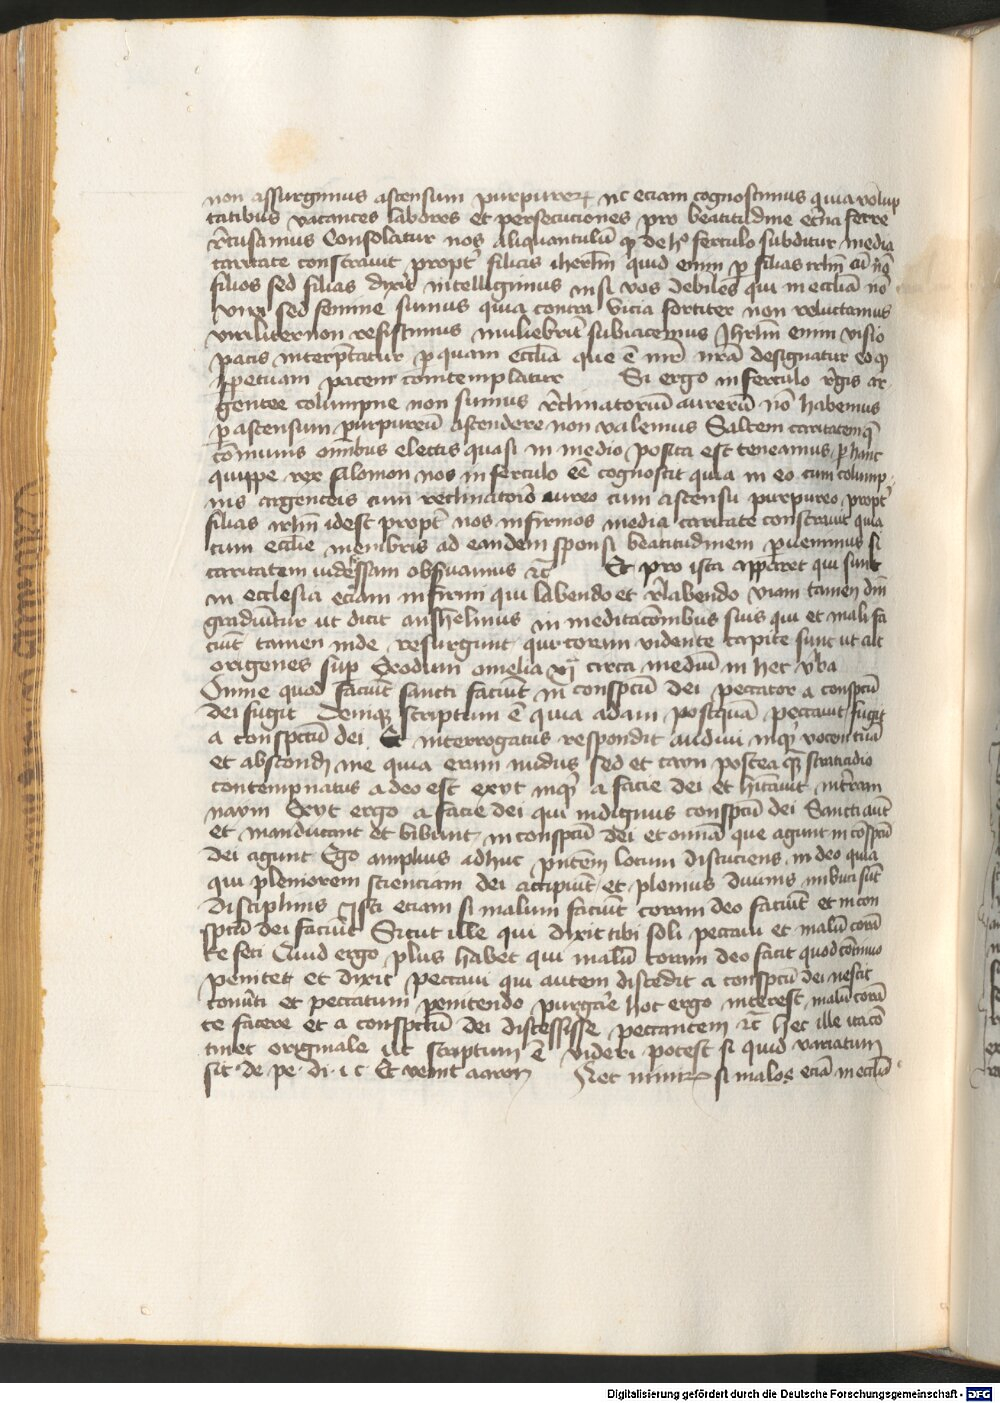 non assurgimus ascensum purpureum nc eciam cognoscimus quia volup
tatibus vacantes labores et persecuciones pro beatitudine et̄na ferre
recusamus Consolatur nos aliquantulū qd de h° ferculo subditur media
caritate constravit propt̓ filias iherl̄m quid enim p filias irl̄m cū nō
filios sed filias dyxit intelligimus nisi vos debiles qui in eccl̄ia nō
viri sed femine sumus quia contra vicia fortiter non reluctamus
viriliter non resistimus muliebrit̓ subiacemus Jhrl̄m enim visio
pacis interp̄tatur p quam eccl̄ia que ē mr̄ nr̄a designatur eo qd
ppetuam pacem comtemplatur Si ergo in ferculo regis ar
gentee columpne non sumus reclinatoriū aureum nō habemus
p ascensum purpureū ascendere non valemus Saltem caritatem q̄
cōmunis omnibus electis quasi in medio posita est teneamus p hanc
quippe rex salomon nos in ferculo eē cognoscit quia in eo cum colump
nis argenteis cum reclinatorio aureo cum ascensu purpureo propt̓
filias irl̄m idest propt̓ nos infirmos media caritate constravit quia
cum eccl̄ie membris ad eandem sponsi beatitudinem puenimus si
caritatem indefessam observamus ꝛc Et pro ista apparet qui sunt
in ecclesia eciam infirmi qui labendo et relabendo viam tamen dn̄i
gradiūtur ut dicit anshelmus in meditacōnibus suis qui et mala fa
ciūt tamen inde resurgunt qur coram vidente capite sunt ut ait
origenes sup Exodum omelia xj circa mediū in hec verba
Omne quod faciūt sancti faciūt in conspectū dei peccator a conspectū
dei fugit Denique scriptum ē quia adam postquā peccavit fugit
a conspectū dei Et interrogatus respondit audivi inqt vocem tuā
et abscondi me quia eram nudus sed et cayn postea qm̄ fratricidio
contempnatus a deo est exyt inqt a facie dei et hītavit in terram
naym Exyt ergo a facie dei qui indignus conspectū dei Sancti aūt
et manducant et bibunt in conspectū dei et omnia que agunt in cōspectū
dei agunt Ego amplius adhuc pn̄tem locum discuciens video quia
qui pleniorem scienciam dei accipiūt et plenius divinis imbuti sūt
disciplinis Isti etiam si malum faciūt coram deo faciūt et in con
spectū dei faciūt Sicut ille qui dyxit tibi soli peccavi et malū corā
te feci Quid ergo plus habet qui malū coram deo facit quod cōtinuo
penitet et dixit peccavi qui autem discedit a conspectū dei nescit
conūti et peccatum penitendo purgare hoc ergo interest malū corā
te facere et a conspectū dei discessisse peccantem ꝛc hec ille ita cō
tinet originale ut scriptum ē videri potest si quid variatum
sit de pe di i c Et venit aaron Nec mirum si malos eciā in eccl̄ia
Digitalisierung gefördert durch die Deutsche Forschungsgemeinschaft - DFG